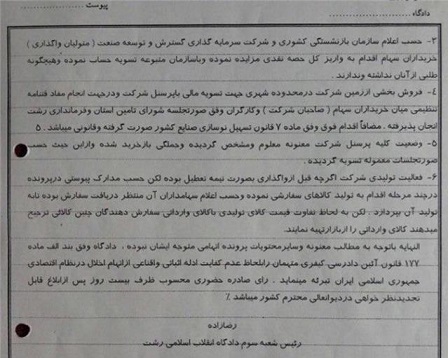 پیوست ................
دادگاه ................
۳- حسب اعلام سازمان بازنشستگی کشوری و شرکت سرمایه گذاری گسترش و توسعه صنعت ( متولیان واگذاری )
خریداران سهام اقدام به واریز کل حصه نقدی مزایده نموده وباسازمان متبوعه تسویه حساب نموده وهیچگونه
طلبی ازآنان نداشته وندارند .
۴- فروش بخشی اززمین شرکت درمحدوده شهری جهت تسویه مالی باپرسنل شرکت ودرجهت انجام مفاد قتنامه
تنظیمی میان خریداران سهام ( صاحبان شرکت ) وکارگران وفق صورتجلسه شورای تامین استان وفرمانداری رشت
انجام پذیرفته . مضافاً اقدام فوق وفق ماده ۷ قانون تسهیل نوسازی صنایع کشور صورت گرفته وقانونی میباشد . ۵
۵- وضعیت کلیه پرسنل شرکت معنونه معلوم ومشخص گردیده وجملگی بازخرید شده وازاین حیث حسب
صورتجلسات معموله تسویه گردیده .
۶- فعالیت تولیدی شرکت اگرچه قبل ازواگذاری بصورت نیمه تعطیل بوده لکن حسب مدارک پیوستی درپرونده
درچند مرحله اقدام به تولید کالاهای سفارشی نموده وحسب اعلام سهامداران آن منتظر دریافت سفارش بوده تابه
تولید آن بپردازد . لکن به لحاظ تفاوت قیمت کالای تولیدی باکالای وارداتی سفارش دهندگان چنین کالائی ترجیح
میدهند کالای وارداتی را ازبازارتهیه نمایند.
النهایه باتوجه به مطالب معنونه وسایرمحتویات پرونده اتهامی متوجه ایشان نبوده . دادگاه وفق بند الف ماده
۱۷۷ قانون آئین دادرسی کیفری متهمان رابلحاظ عدم کفایت ادله اثباتی واقناعی ازاتهام اخلال درنظام اقتصادی
جمهوری اسلامی ایران تبرئه مینماید . رای صادره حضوری محسوب ظرف بیست روز پس ازابلاغ قابل
تجدیدنظر خواهی دردیوانعالی محترم کشور میباشد ٪
رضازاده
رئیس شعبه سوم دادگاه انقلاب اسلامی رشت